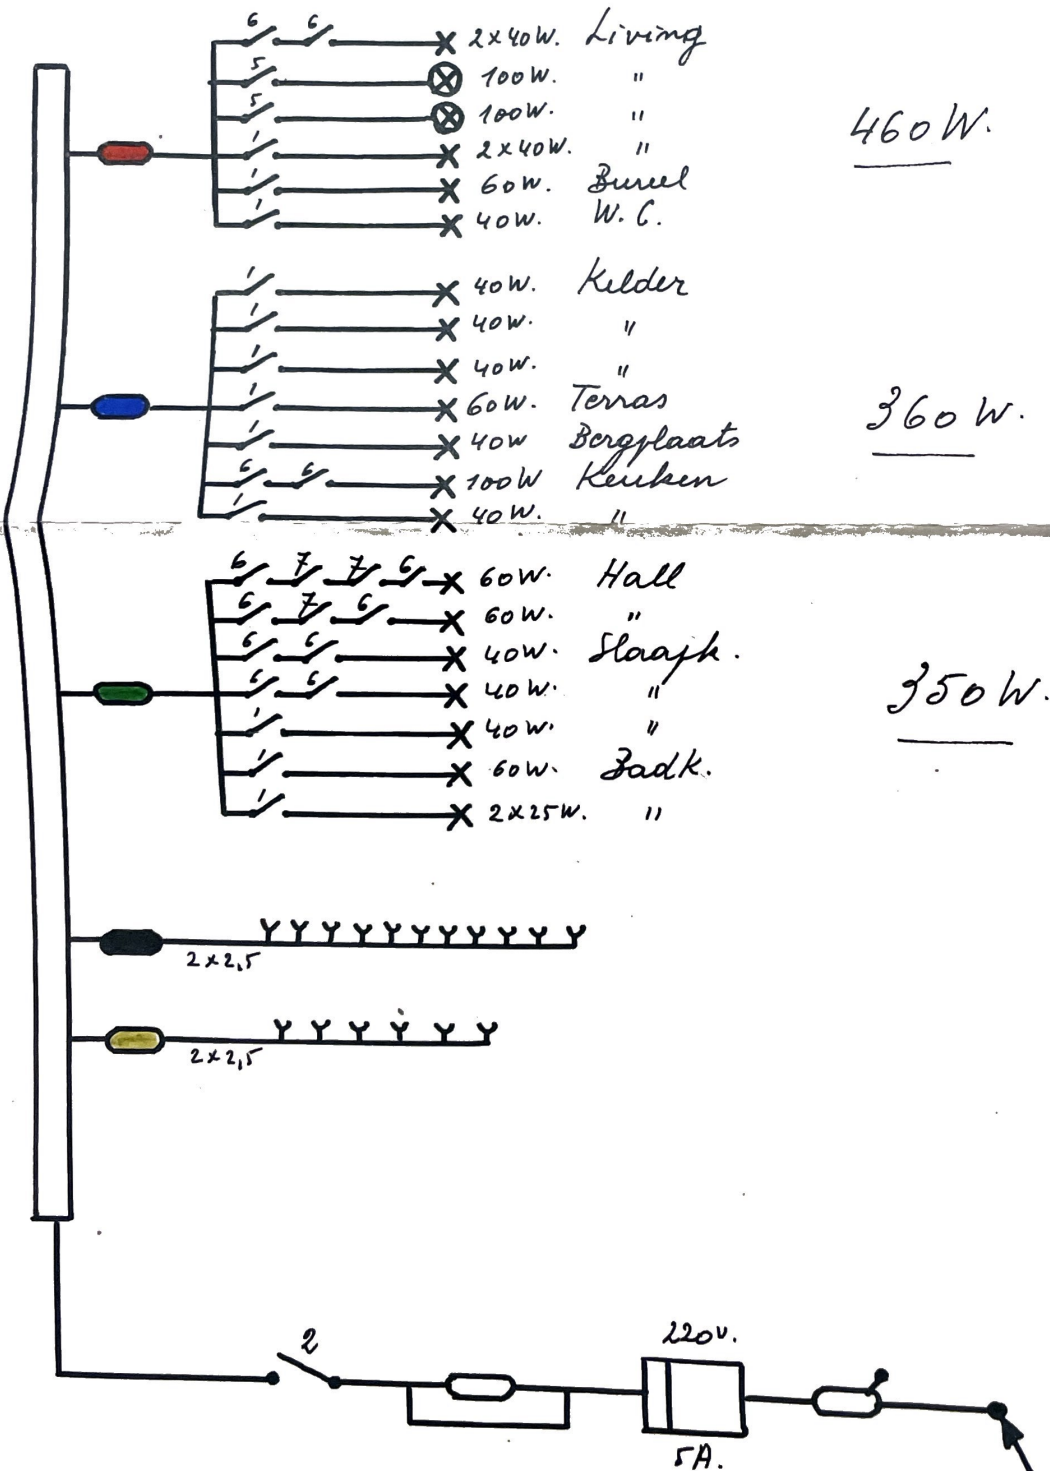 6 6 2x40W. Living
5 100W. "
5 100W. "
460W.
1 2x40W. "
1 60W. Bureel
1 40W. W.C.
1 40W. Kelder
1 40W. "
1 40W. "
1 60W. Terras
360W.
1 40W Bergplaats
6 6 100W Keuken
1 40W. "
6 7 7 6 60W. Hall
6 7 6 60W. "
6 6 40W. Slaapk.
6 6 40W. "
350W.
1 40W. "
1 60W. Badk.
1 2x25W. "
2x2,5
2x2,5
2
220v.
5A.